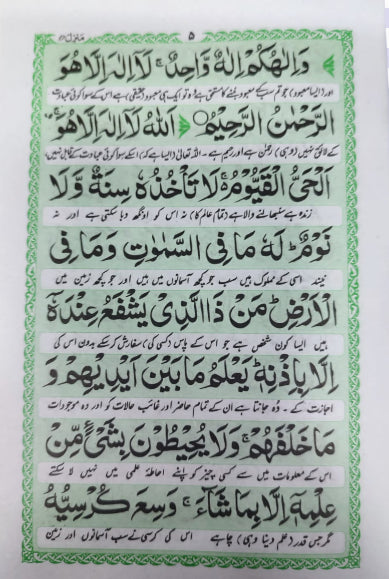 منزل ۵
وَاِلٰهُكُمْ اِلٰهٌ وَّاحِدٌ ۚ لَآ اِلٰهَ اِلَّا هُوَ
اور (ایسا معبود) جو تم سب کے معبود بننے کا مستحق ہے وہ تو ایک ہی معبود (حقیقی) ہے اس کے سوا کوئی عبادت
الرَّحْمٰنُ الرَّحِيْمُ ۝ اَللّٰهُ لَآ اِلٰهَ اِلَّا هُوَ ۚ
کے لائق نہیں (وہی) رحمٰن ہے اور رحیم ہے ۔ اللہ تعالیٰ (ایسا ہے کہ) اسکے سوا کوئی عبادت کے قابل نہیں
اَلْحَيُّ الْقَيُّوْمُ ۚ لَا تَاْخُذُهٗ سِنَةٌ وَّلَا
زندہ ہے سنبھالنے والا ہے (تمام عالم کا) نہ اس کو اونگھ دبا سکتی ہے اور نہ
نَوْمٌ ؕ لَهٗ مَا فِي السَّمٰوٰتِ وَمَا فِي
نیند اسی کے مملوک ہیں سب جو کچھ آسمانوں میں ہیں اور جو کچھ زمین میں
الْاَرْضِ ؕ مَنْ ذَا الَّذِيْ يَشْفَعُ عِنْدَهٗٓ
ہیں ایسا کون شخص ہے جو اس کے پاس (کسی کی) سفارش کرسکے بدون اس کی
اِلَّا بِاِذْنِهٖ ؕ يَعْلَمُ مَا بَيْنَ اَيْدِيْهِمْ وَ
اجازت کے ۔ وہ جانتا ہے ان کے تمام حاضر اور غائب حالات کو اور وہ موجودات
مَا خَلْفَهُمْ ۚ وَلَا يُحِيْطُوْنَ بِشَيْءٍ مِّنْ
اس کے معلومات میں سے کسی چیز کو اپنے احاطۂ علمی میں نہیں لا سکتے
عِلْمِهٖٓ اِلَّا بِمَا شَآءَ ۚ وَسِعَ كُرْسِيُّهُ
مگر جس قدر (علم دینا وہی) چاہے اس کی کرسی نے سب آسمانوں اور زمین